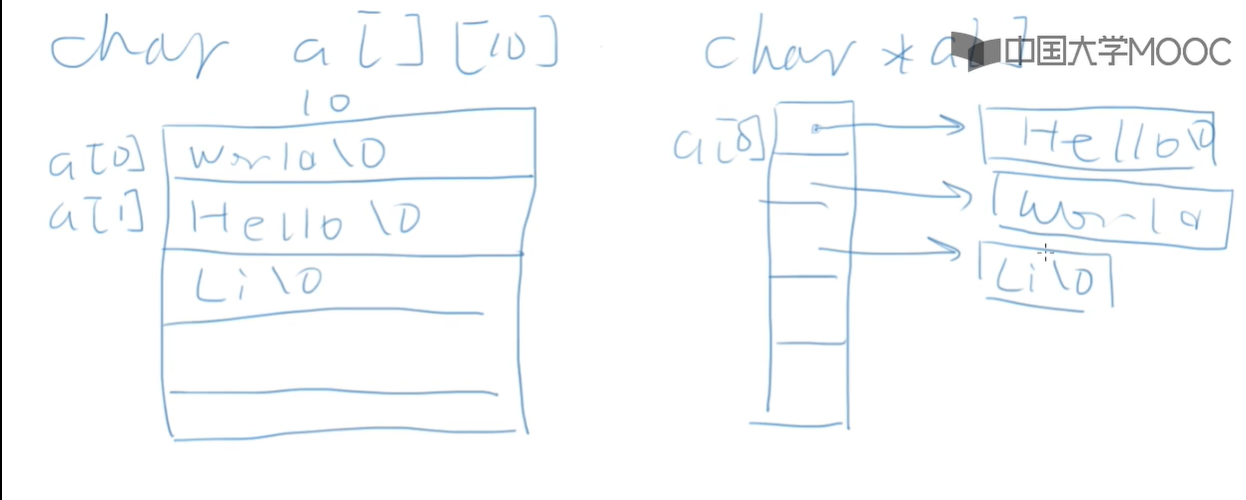 char a[][10]
10
a[0] World\0
a[1] Hello\0
Li\0
char *a[]
中国大学MOOC
a[0] Hello\0
World
Li\0